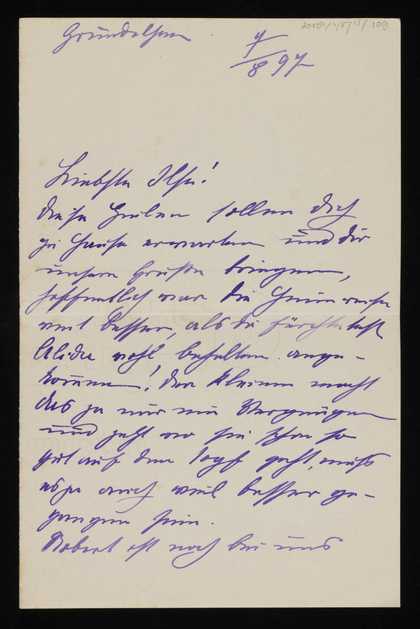 Grundlsee
7/8 97
Liebste Ilse!
diese Zeilen sollen dich
zu Hause erwarten und dir
unsere Grüße bringen,
hoffentlich war die Heimreise
viel besser, als du fürchtetest
wohl behalten ange-
kommen! Der Kleinen macht
das ja nur ein Vergnügen
und jetzt wo sie schon so
gut auf den Topf geht, muß
es ja auch viel besser ge-
gangen sein.
Robert ist noch bei uns